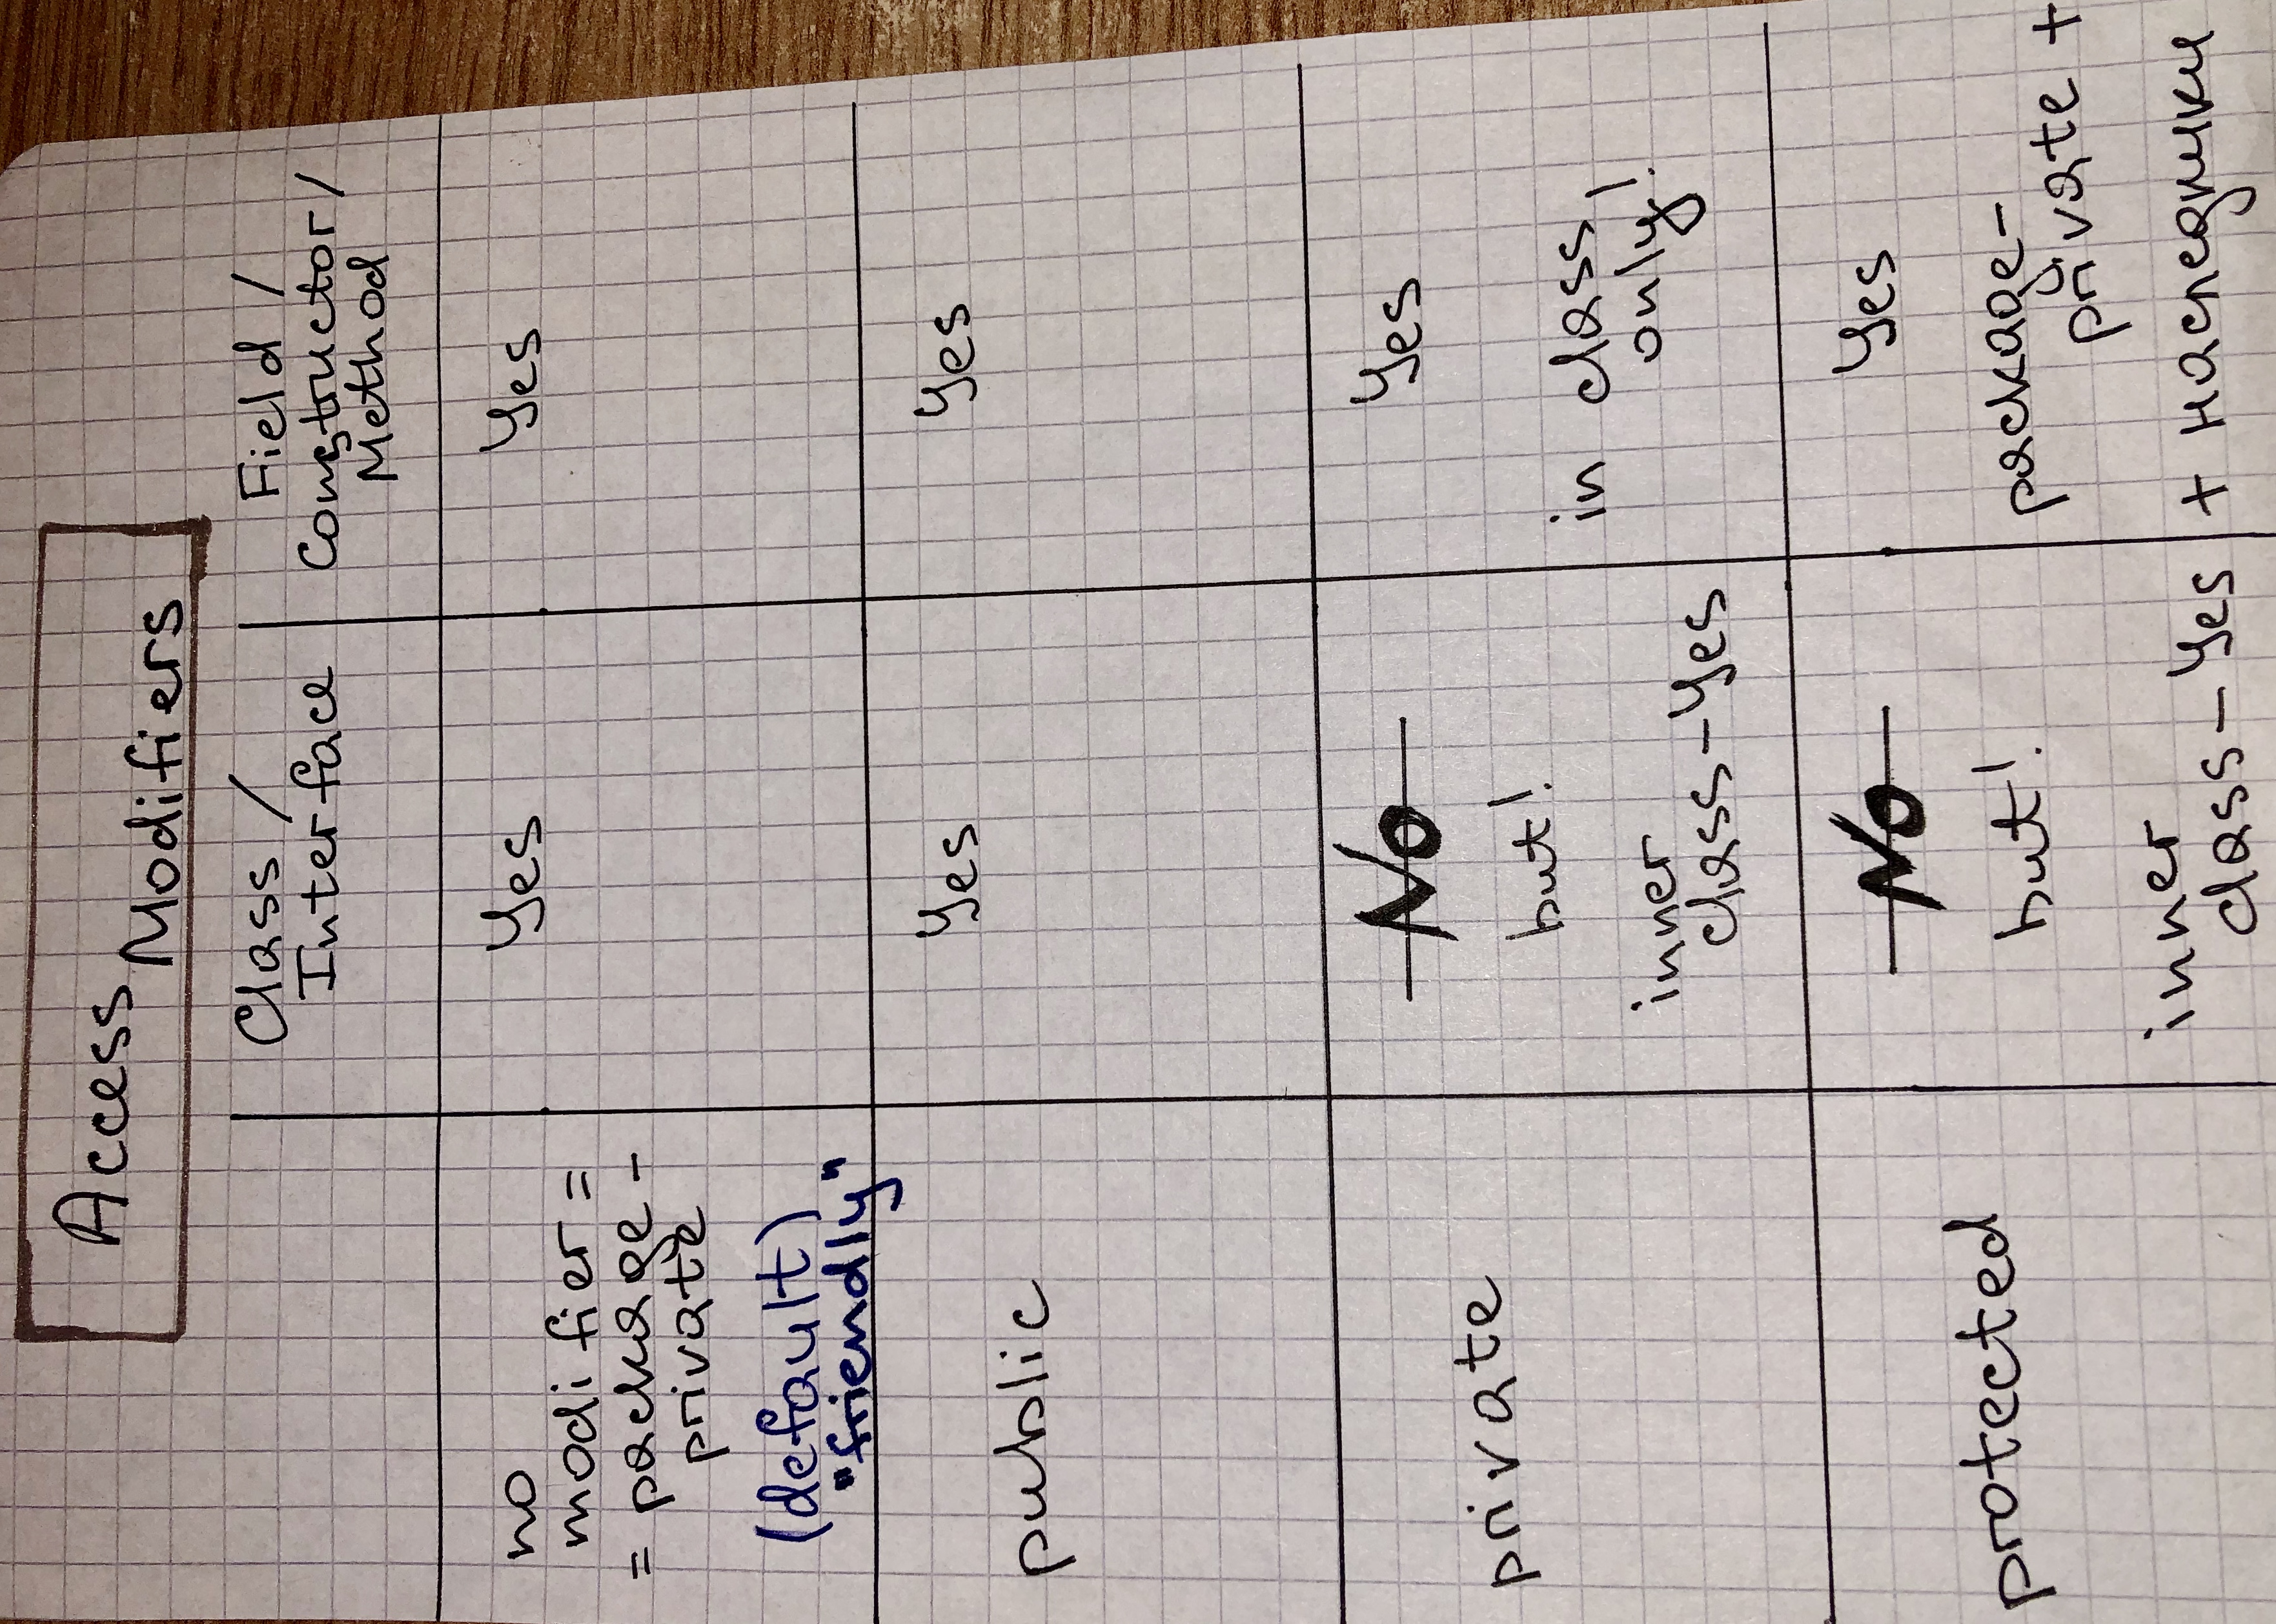 Access
Modifiers
Class /
Interface
Field /
Constructor /
Method
no
modifier =
= package -
private
(default)
"friendly"
Yes
Yes
public
Yes
Yes
private
No
but!
inner
class - Yes
Yes
in class
only!
protected
No
but!
inner
class - Yes
Yes
package -
private +
+ наследники